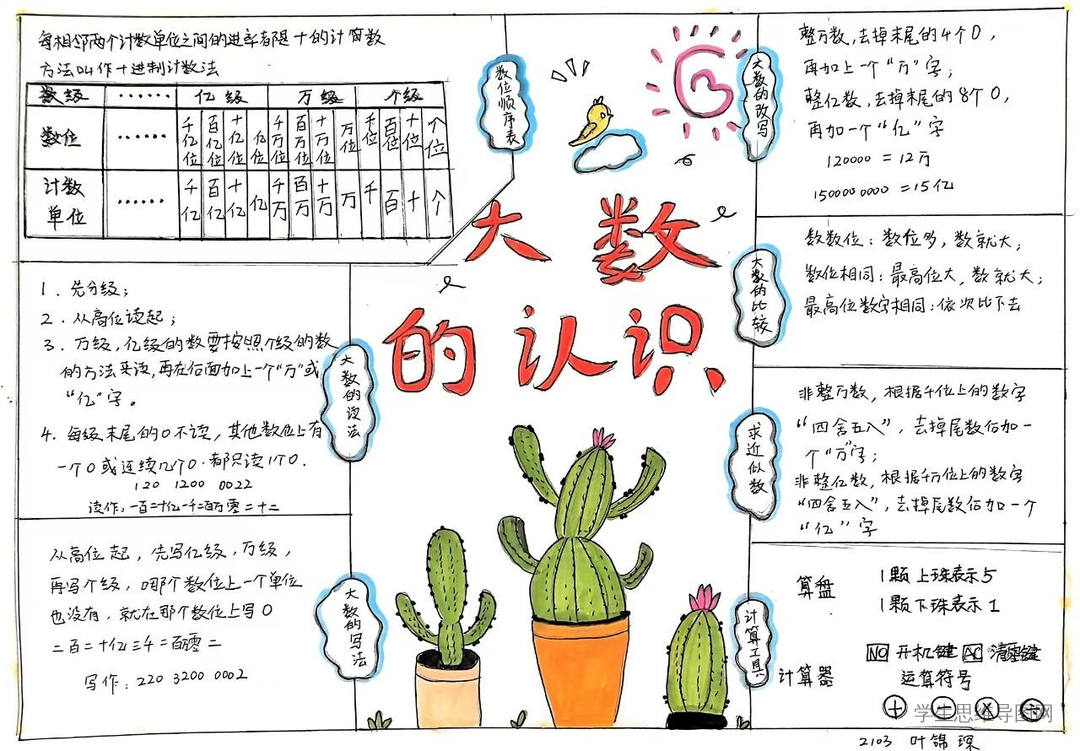 每相邻两个计数单位之间的进率都是十的计算数
方法叫作十进制计数法
数级 …… 亿级 万级 个级
数位 …… 千亿位 百亿位 十亿位 亿位 千万位 百万位 十万位 万位 千位 百位 十位 个位
计数单位 …… 千亿 百亿 十亿 亿 千万 百万 十万 万 千 百 十 个
数位顺序表
大数的认识
1. 先分级;
2. 从高位读起;
3. 万级,亿级的数要按照个级的数
的方法来读,再在后面加上一个“万”或
“亿”字。
4. 每级末尾的0不读,其他数位上有
一个0或连续几个0.都只读1个0.
120 1200 0022
读作:一百二十亿一千二百万零二十二
大数的读法
从高位起,先写亿级,万级,
再写个级,哪个数位上一个单位
也没有,就在那个数位上写0
二百二十亿三千二百万零二
写作:220 3200 0002
大数的写法
大数的改写
整万数,去掉末尾的4个0,
再加上一个“万”字;
整亿数,去掉末尾的8个0,
再加一个“亿”字
120000 = 12万
1500000000 = 15亿
大数的比较
数数位:数位多,数就大;
数位相同:最高位大,数就大;
最高位数字相同:依次比下去
求近似数
非整万数,根据千位上的数字
“四舍五入”,去掉尾数后加一
个“万”字;
非整亿数,根据千万位上的数字
“四舍五入”,去掉尾数后加一个
“亿”字
计算工具
算盘
1颗上珠表示5
1颗下珠表示1
计算器
NO 开机键 AC 清零键
运算符号
+ − × ÷
学生思维导图网
2103 叶锦琛